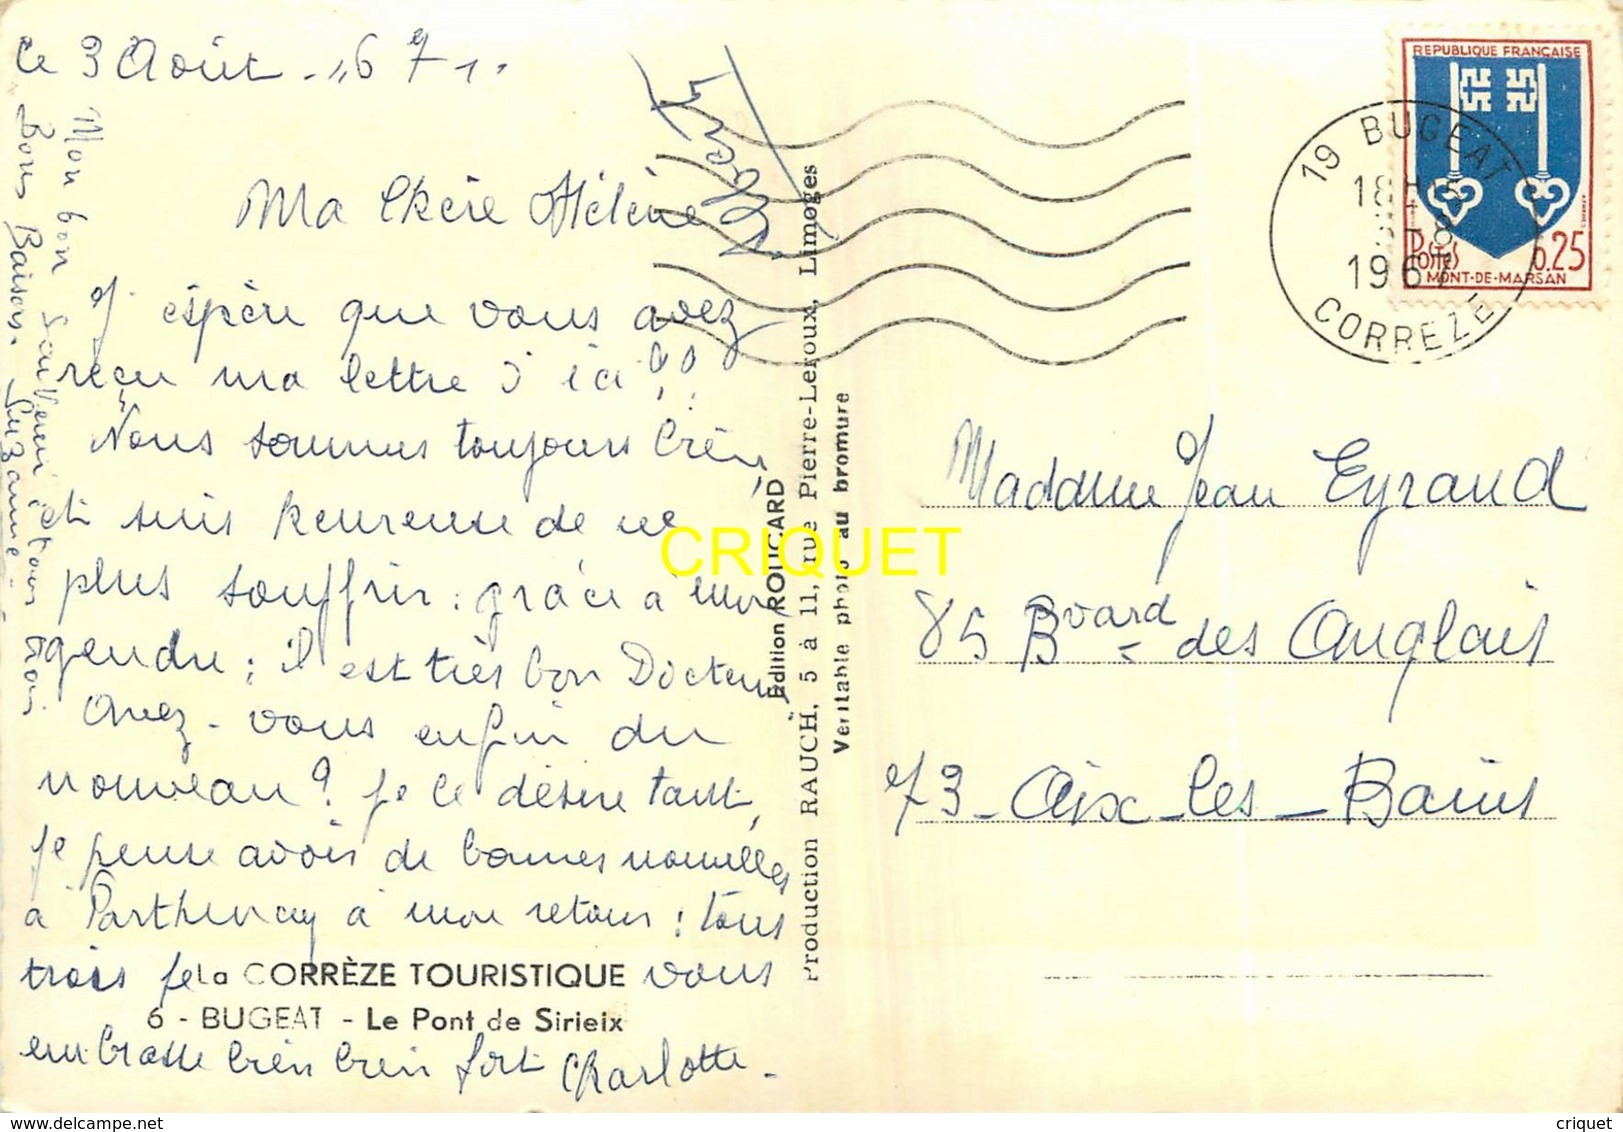 ce 3 Août - "67".
Ma Chère Hélène
J'espère que vous avez
reçu ma lettre d'ici !!
Nous sommes toujours bien,
et suis heureuse de ne
plus souffrir : grâce à mon
gendre ; il est très bon Docteur
Avez-vous enfin du
nouveau ? Je le désire tant,
je pense avoir de bonnes nouvelles
à Parthenay à mon retour : tous
trois je vous
embrasse bien bien fort Charlotte -
Mon bon souvenir à tous trois
Bons Baisers. Suzanne -
La CORRÈZE TOURISTIQUE
6 - BUGEAT - Le Pont de Sirieix
Edition ROUCARD
Production RAUCH, 5 à 11, rue Pierre-Leroux, Limoges
Véritable photo au bromure
CRIQUET
REPUBLIQUE FRANÇAISE
POSTES 0.25
MONT-DE-MARSAN
19 BUGEAT
18H
3-8
1967
CORREZE
Madame Jean Eyraud
85 Bvard des Anglais
73 - Aix-les-Bains
delcampe.net
criquet